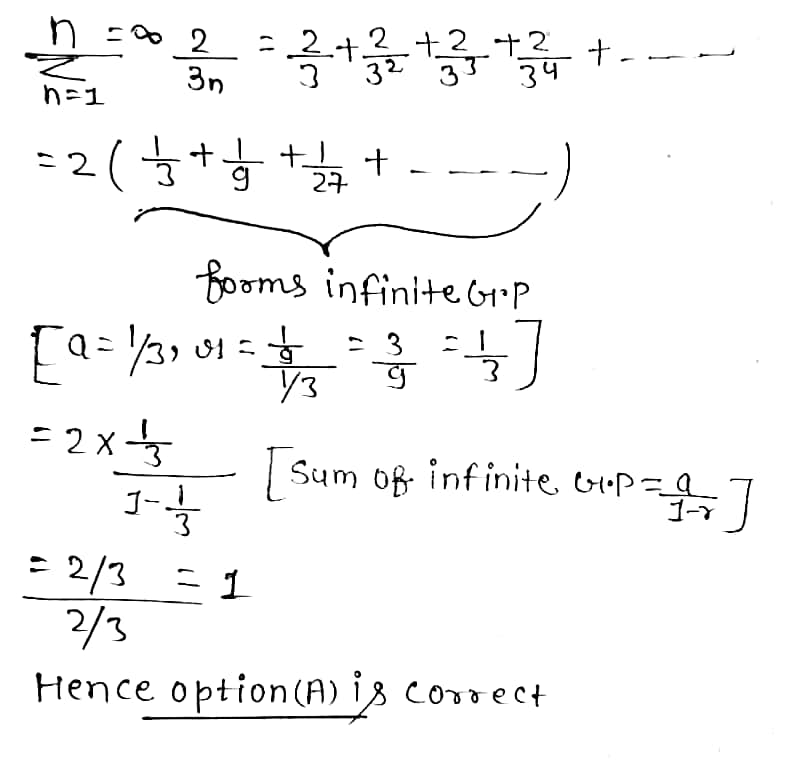 n=∞ Σ n=1 2/3n = 2/3 + 2/3² + 2/3³ + 2/3⁴ + - - - -
= 2 ( 1/3 + 1/9 + 1/27 + - - - - )
forms infinite G.P
[ a = 1/3, r = 1/9 / 1/3 = 3/9 = 1/3 ]
= 2 × 1/3 / 1 - 1/3 [ Sum of infinite G.P = a / 1-r ]
= 2/3 / 2/3 = 1
Hence option (A) is correct